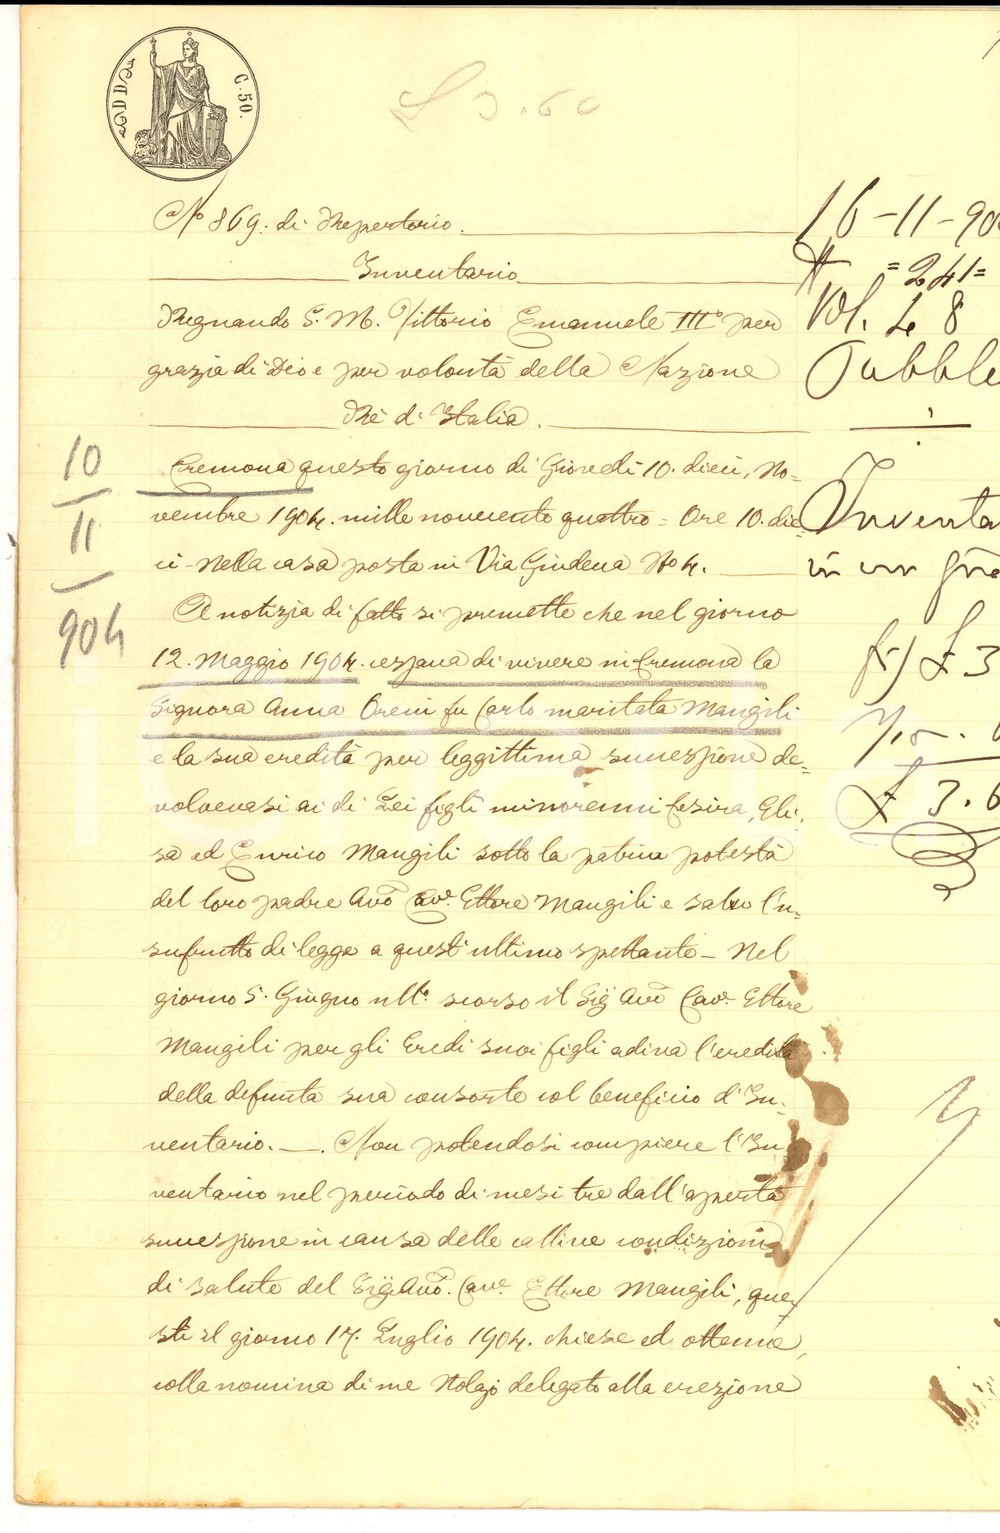 C. 50.
£ 3.60
N° 869. di Repertorio.
Inventario
Regnando S. M. Vittorio Emanuele III° per
grazia di Dio e per volontà della Nazione
Rè d'Italia.
Cremona questo giorno di Giovedì 10. dieci, No=
vembre 1904. mille novecento quattro = Ore 10. die
ci - nella casa posta in Via Giudena N° 4.
A notizia di fatto si premette che nel giorno
12. Maggio 1904. cessava di vivere in Cremona la
Signora Anna Oreni fu Carlo maritata Mangili
e la sua eredità per leggittima successione de=
volvevasi ai di Lei figli minorenni Cesira, Eli=
sa ed Enrico Mangili sotto la patria potestà
del loro padre Avv° Cav.e Ettore Mangili e salvo l'u=
sufrutto di legge a quest'ultimo spettante - Nel
giorno 5. Giugno ult° scorso il Sig Avv° Cav.e Ettore
Mangili per gli Eredi suoi figli adiva l'eredità
della defunta sua consorte col beneficio d'In=
ventario. —. Non potendosi compiere l'In=
ventario nel periodo di mesi tre dall'aperta
successione in causa delle cattive condizioni
di salute del Sig Avv°. Cav.e Ettore Mangili, que=
sti il giorno 17. Luglio 1904. chiese ed ottenne,
colla nomina di me Notajo delegato alla erezione
10
11
904
16-11-90
N =241=
Vol. 48
Pubbl
Inventa
in un
f) £ 3
£ 3.6